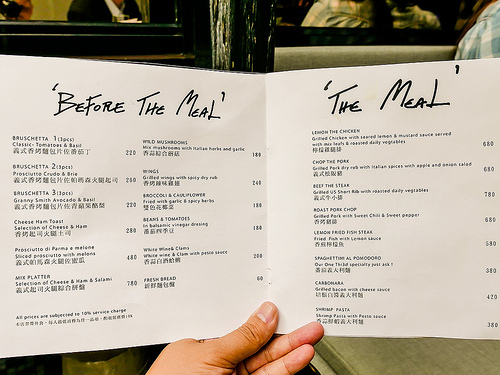 'BEFORE THE MEAL'
BRUSCHETTA 1 (3pcs)
Classic- Tomatoes & Basil
義式香烤麵包片佐番茄丁 220
BRUSCHETTA 2 (3pcs)
Prosciutto Crudo & Brie
義式香烤麵包片佐帕瑪森火腿起司 260
BRUSCHETTA 3 (3pcs)
Granny Smith Avocado & Basil
義式香烤麵包片佐青蘋果酪梨 220
Cheese Ham Toast
Selection of Cheese & Ham
香烤起司火腿土司 280
Prosciutto di Parma e melone
Sliced prosciutto with melons
義式帕瑪森火腿佐蜜瓜 480
MIX PLATTER
Selection of Cheese & Ham & Salami
義式起司火腿綜合拼盤 780
All prices are subjected to 10% service charge
WILD MUSHROOMS
Mix mushrooms with Italian herbs and garlic
香蒜綜合磨菇 180
WINGS
Grilled wings with spicy dry rub
香烤辣味雞翅 240
BROCCOLI & CAULIFLOWER
Fried with garlic & spicy herbs
雙色花椰菜 180
BEANS & TOMATOES
In balsamic vinegar dressing
番茄四季豆 180
White Wine& Clams
White wine & Clam with pesto sauce
香蒜白酒蛤蜊 200
FRESH BREAD
新鮮麵包籃 60
'THE MEAL'
LEMON THE CHICKEN
Grilled Chicken with seared lemon & mustard sauce served
with mix leafs & roasted daily vegetables
檸檬雞腿排 480
CHOP THE PORK
Grilled Pork dry rub with Italian spices with apple and onion salad
義式松阪豬 680
BEEF THE STEAK
Grilled US Short Rib with roasted daily vegetables
義式牛小排 780
ROAST PORK CHOP
Grilled Pork with Sweet Chili & Sweet pepper
香烤豬排 680
LEMON FRIED FISH STEAK
Fried Fish with Lemon sauce
香煎檸檬魚 580
SPAGHETTIMI AL POMODORO
Our One Third specialty just ask !
番茄義大利麵 380
CARBONARA
Grilled bacon with cheese sauce
培根白醬義大利麵 420
SHRIMP PASTA
Shrimp Pasta with Pesto sauce
香蒜鮮蝦義大利麵 380